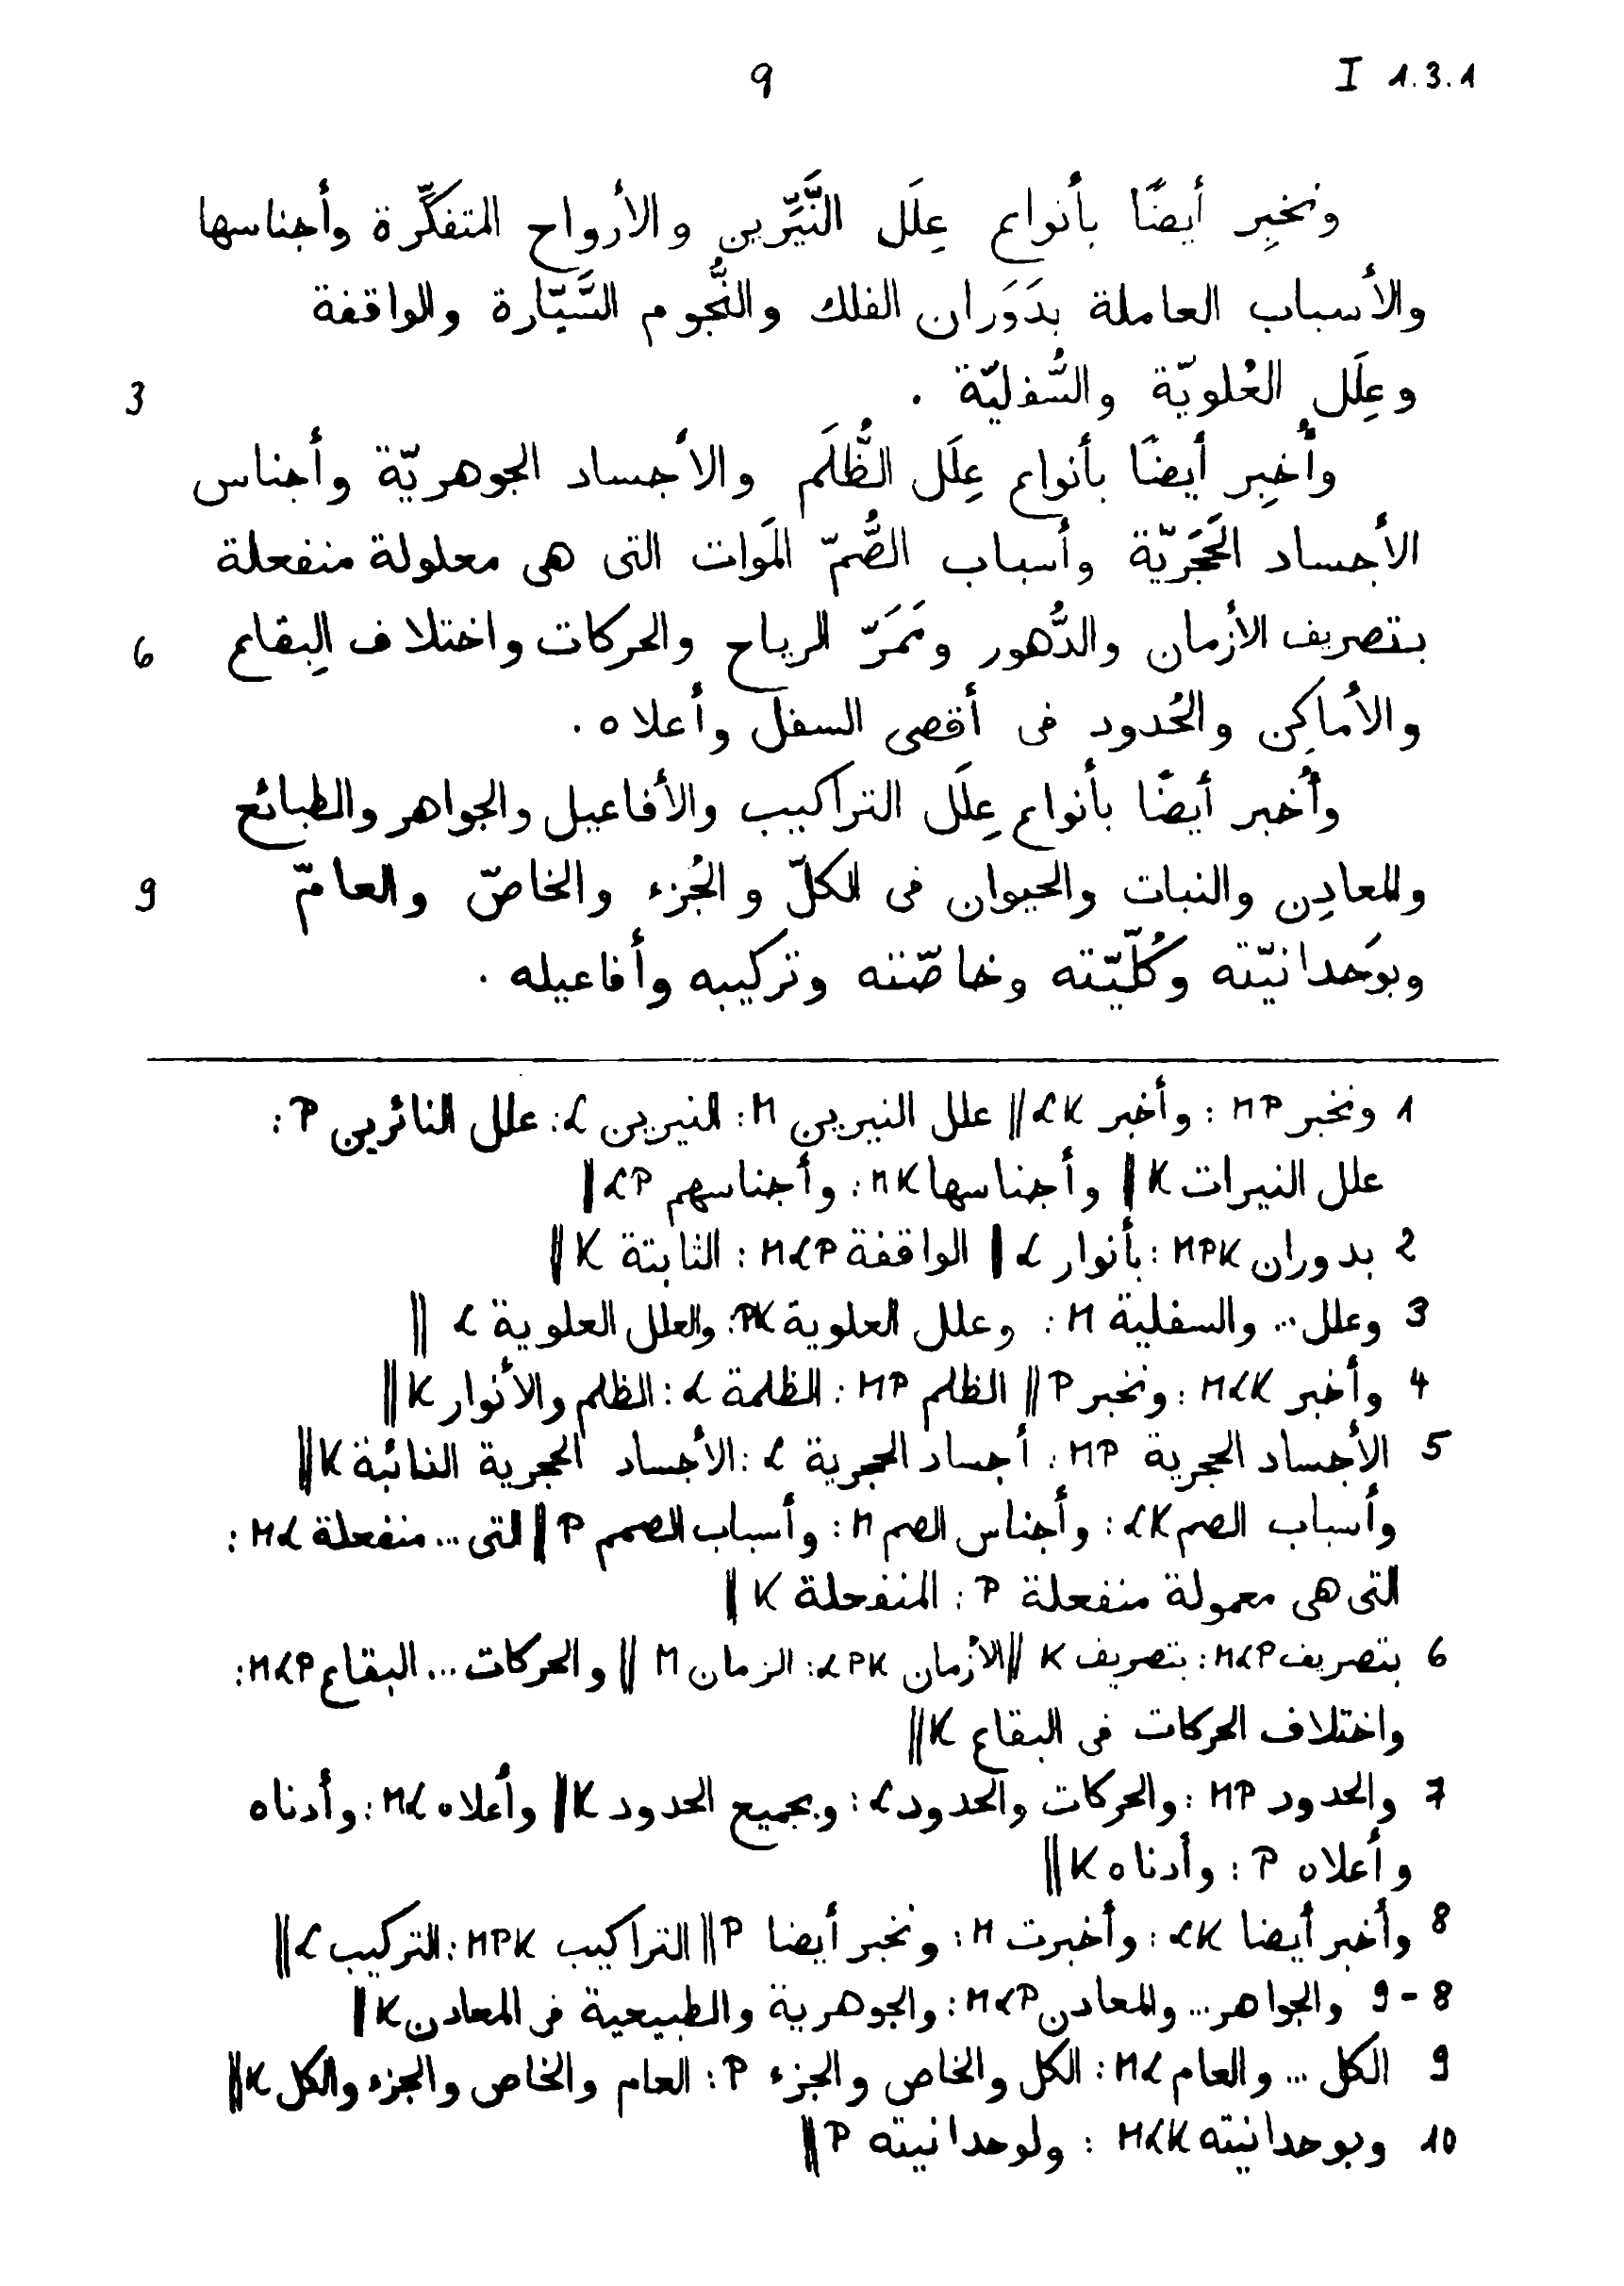 I 1.3.1
9
ونخبِر أيضًا بأنواع عِلَل النَّيِّرَين والأرواح المتفكِّرة وأجناسها
والأسباب العاملة بدَوَران الفلك والنُّجوم السَّيّارة والواقفة
وعِلَل العُلويّة والسُّفليّة . 3
وأُخبِر أيضًا بأنواع عِلَل الظُّلَم والأجساد الجوهريّة وأجناس
الأجساد الحَجَريّة وأسباب الصُّمّ المَوات التى هى معلولة منفعلة
بتصريف الأزمان والدُّهور ومَمَرّ الرياح والحركات واختلاف البِقاع 6
والأماكِن والحُدود فى أقصى السفل وأعلاه .
وأُخبر أيضًا بأنواع عِلَل التراكيب والأفاعيل والجواهر والطبائع
والمعادِن والنبات والحيوان فى الكلّ والجُزء والخاصّ والعامّ 9
وبوَحدانيّته وكُلّيّته وخاصّته وتركيبه وأفاعيله .
1 ونخبر MP : وأخبر LK || علل النيرين M : النيرين L : علل النائرين P :
علل النيرات K || وأجناسها MK : وأجناسهم LP ||
2 بدوران MPK : بأنوار L || الواقفة MLP : الثابتة K ||
3 وعلل ... والسفلية M : وعلل العلوية PK : والعلل العلوية L ||
4 وأخبر MLK : ونخبر P || الظلم MP : الظلمة L : الظلم والأنوار K ||
5 الأجساد الحجرية MP : أجساد الحجرية L : الأجساد الحجرية الذائبة K ||
وأسباب الصم LK : وأجناس الصم M : وأسباب الصمم P || التى ... منفعلة ML :
التى هى معمولة منفعلة P : المنفعلة K ||
6 بتصريف MLP : بتصريف K || الأزمان LPK : الزمان M || والحركات ... البقاع MLP :
واختلاف الحركات فى البقاع K ||
7 والحدود MP : والحركات والحدود L : وبجميع الحدود K || وأعلاه ML : وأدناه
وأعلاه P : وأدناه K ||
8 وأخبر أيضا LK : وأخبرت M : ونخبر أيضا P || التراكيب MPK : التركيب L ||
8-9 والجواهر ... والمعادن MLP : والجوهرية والطبيعية فى المعادن K ||
9 الكل ... والعام ML : الكل والخاص والجزء P : العام والخاص والجزء والكل K ||
10 وبوحدانيته MLK : ولوحدانيته P ||